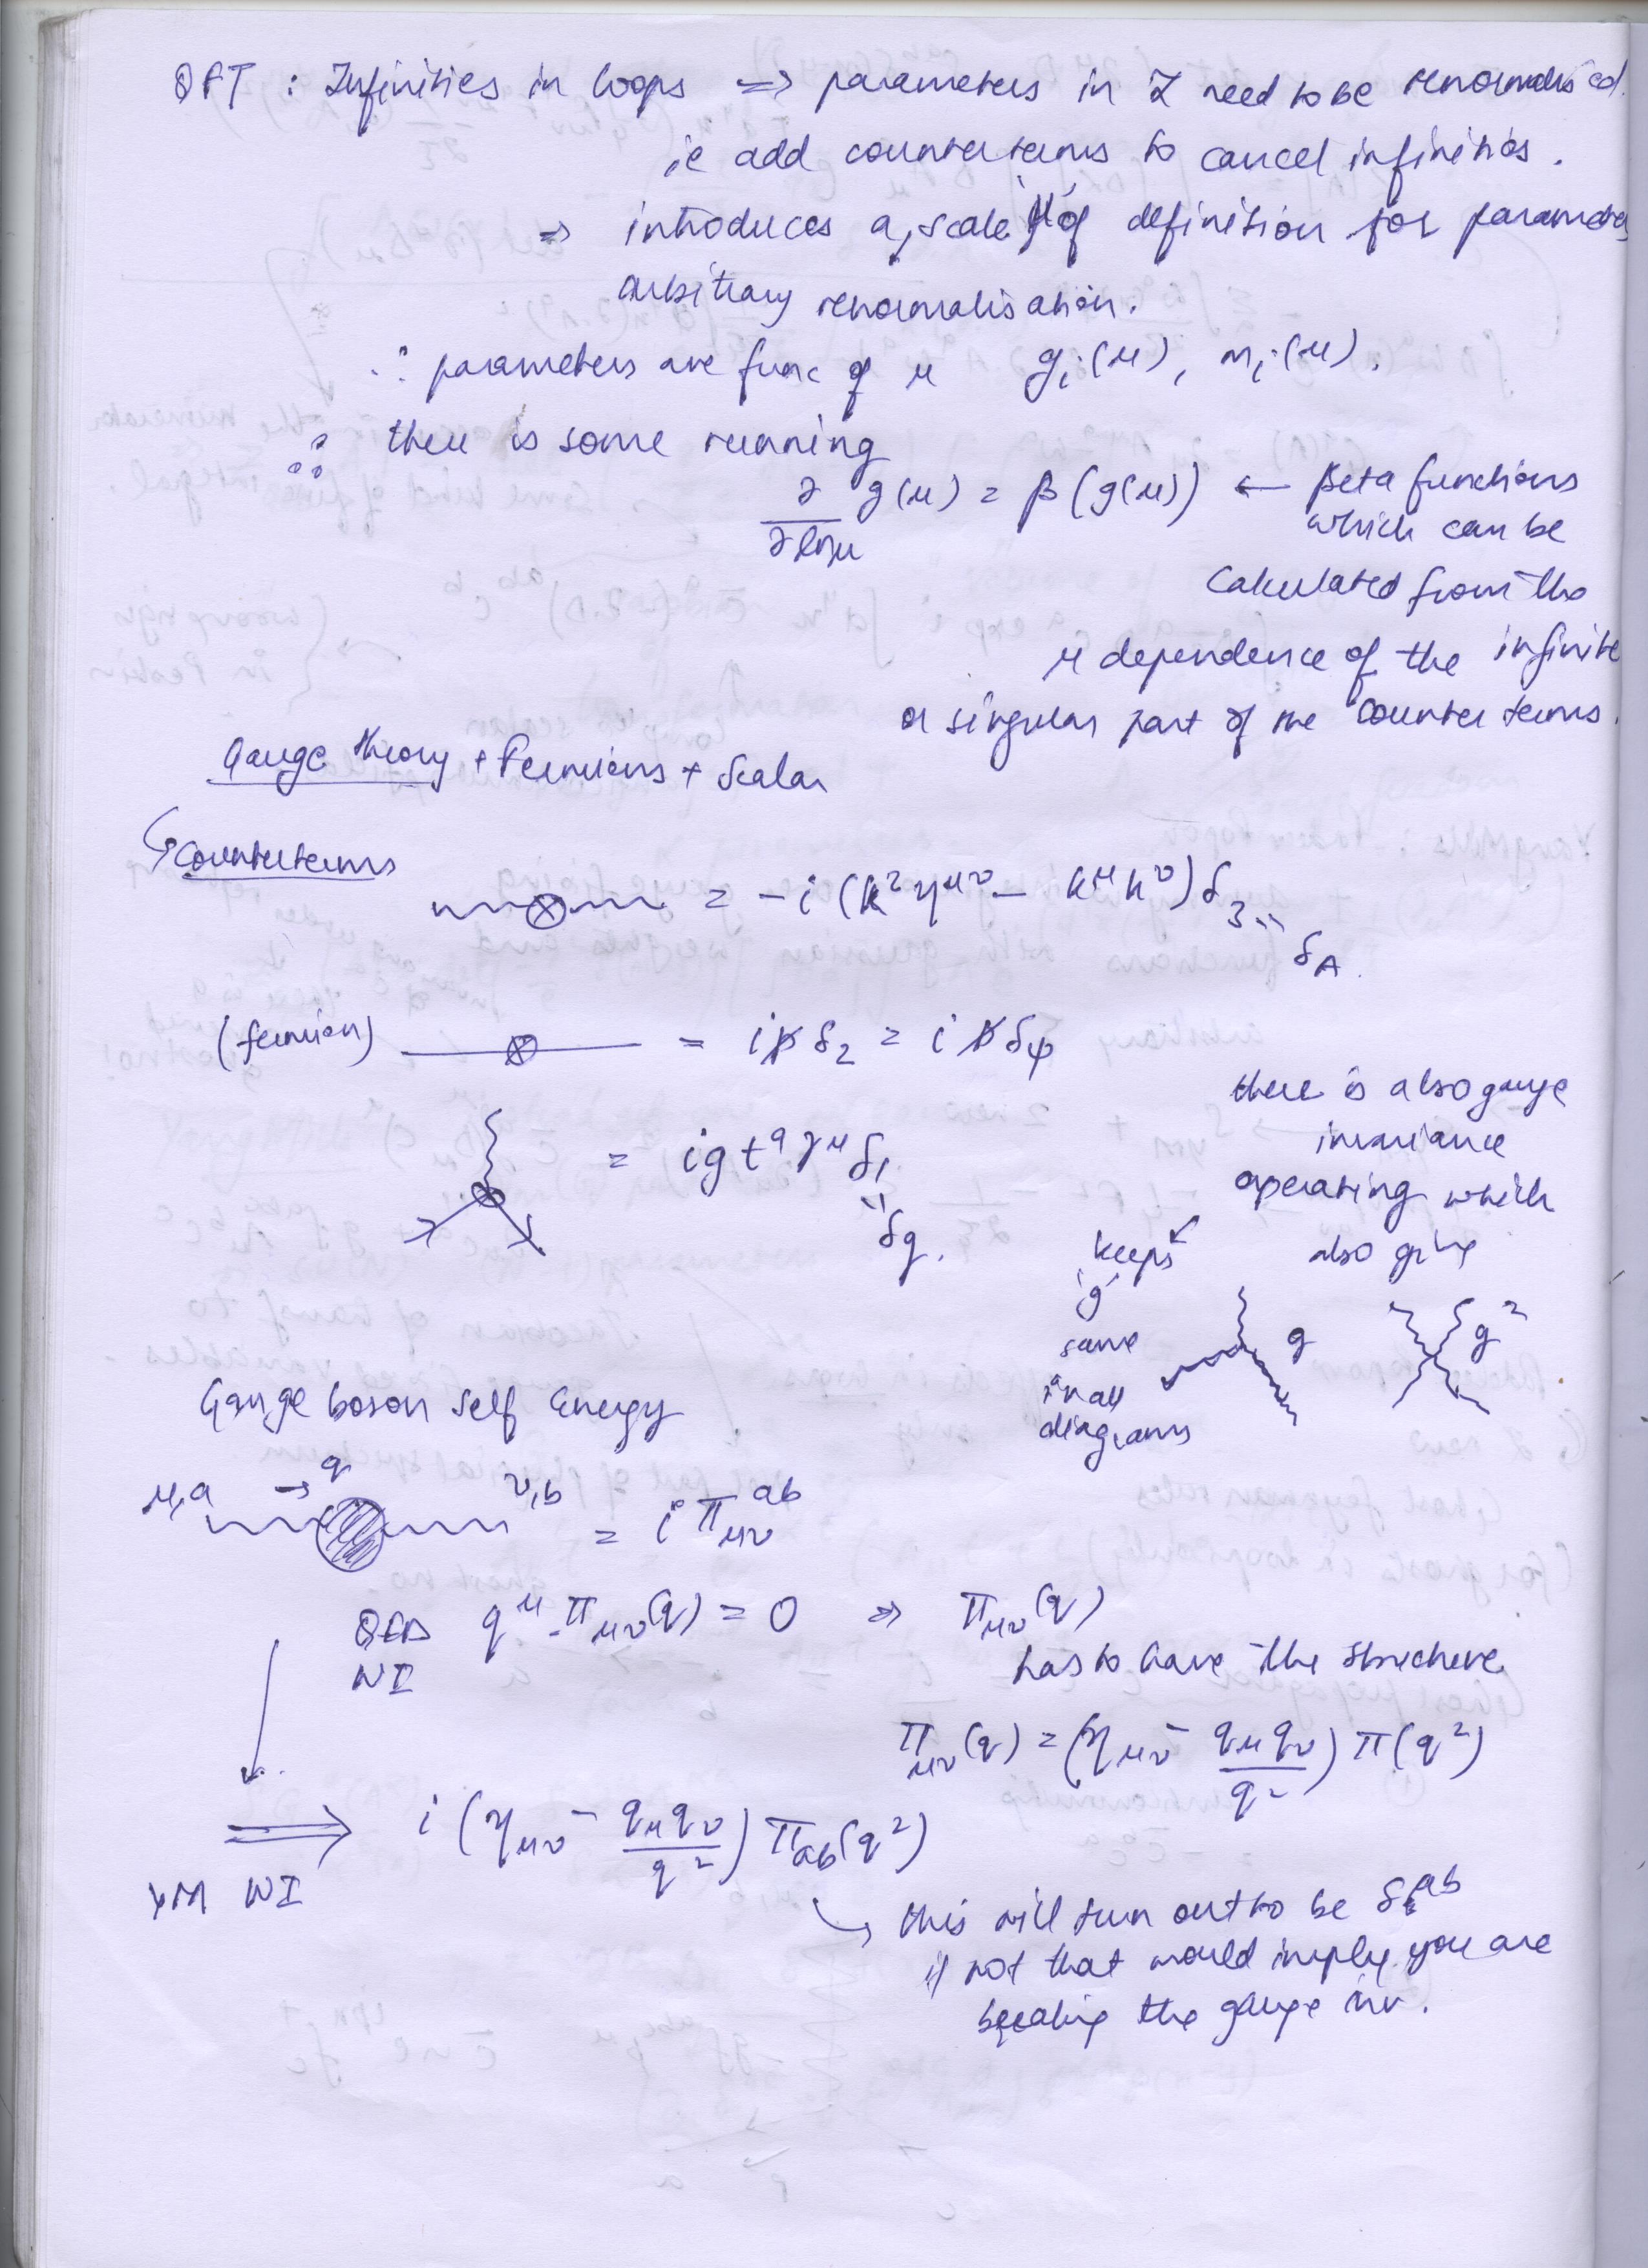 QFT : Infinities in loops => parameters in L need to be renormalised.
ie add counterterms to cancel infinities.
=> introduces a scale 'μ' of definition for parameters
arbitrary renormalisation.
∴ parameters are func of μ g_i(μ), m_i(μ).
∴ there is some running
∂/∂lnμ g(μ) = β(g(μ)) ← Beta functions
which can be
calculated from the
μ dependence of the infinite
or singular part of the counter terms.
Gauge theory + Fermions + Scalar
↳ Counterterms
= -i(k²η^{μν} - k^μ k^ν)δ_3 = δ_A.
(fermion) = i p̸ δ_2 = i p̸ δ_ψ
= i g t^a γ^μ δ_1 = δ_g.
there is also gauge
invariance
operating which
also give
keeps
'g'
same
in all
diagrams
g
g²
Gauge boson Self Energy
μ,a → q ν,b = i π_{μν}^{ab}
QED WI q^μ.π_{μν}(q) = 0 => π_{μν}(q)
has to have the structure
π_{μν}(q) = (η_{μν} - q_μ q_ν / q²) π(q²)
YM WI => i(η_{μν} - q_μ q_ν / q²) π_{ab}(q²)
↳ this will turn out to be δ^{ab}
if not that would imply you are
breaking the gauge inv.